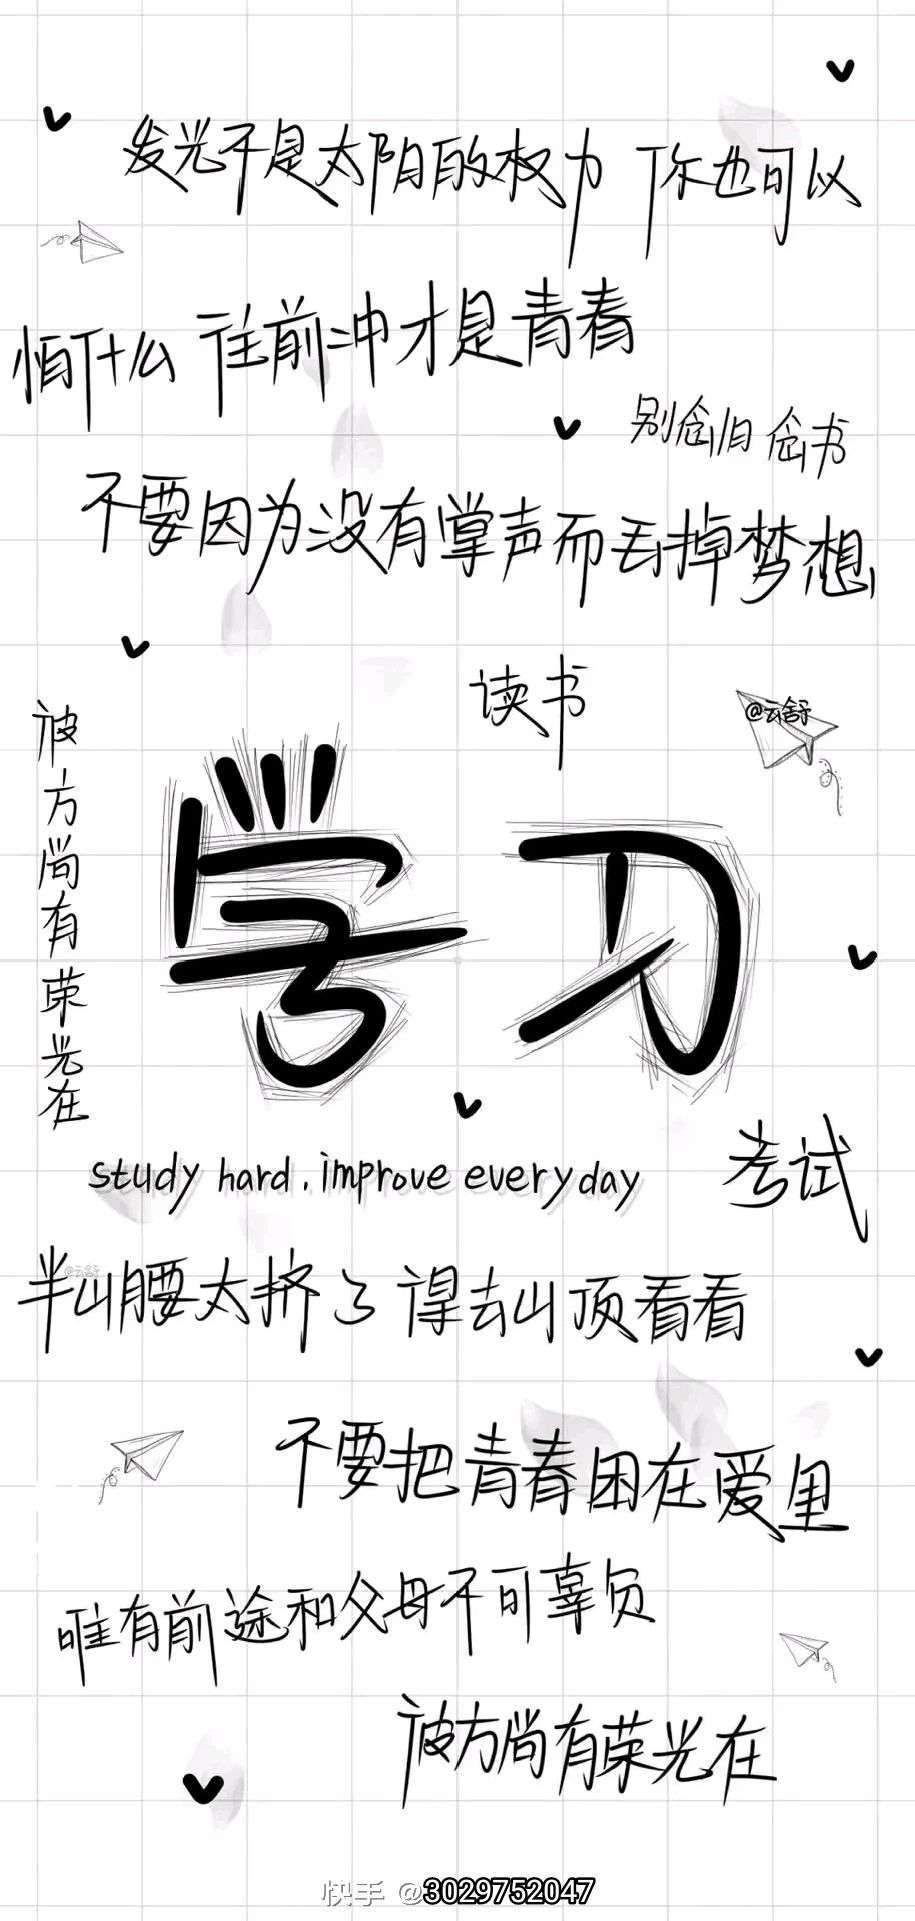 发光不是太阳的权力 你也可以
怕什么 往前冲才是青春
别念旧 念书
不要因为没有掌声而丢掉梦想
读书
@云舒
彼方尚有荣光在
学习
study hard. improve everyday
考试
@云舒
半山腰太挤了 得去山顶看看
不要把青春困在爱里
唯有前途和父母不可辜负
彼方尚有荣光在
快手 @3029752047